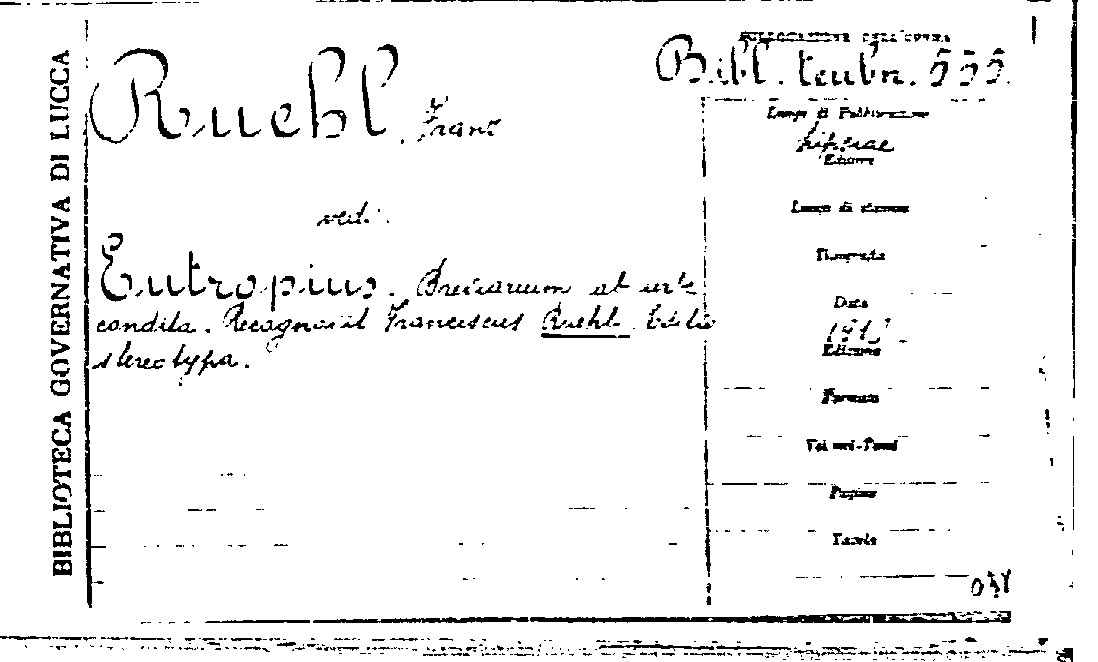 BIBLIOTECA GOVERNATIVA DI LUCCA
COLLOCAZIONE DELL'OPERA
Bibl. teubn. 555.
Ruehl, Franc
Luogo di Pubblicazione
Lipsiae
Editore
vedi:
Luogo di stampa
Tipografo
Eutropius. Breviarium ab urbe
condita. Recognovit Franciscus Ruehl. Editio
stereotypa.
Data
Edizione
Formato
Volumi-Tomi
Pagine
Tavole